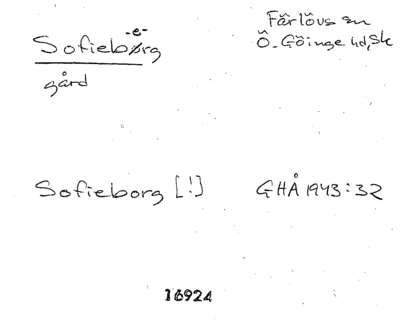 Sofieberg
-e-
Färlövs sn
gård
Ö. Göinge hd, Sk
Sofieborg [!]
GHÅ 1943:32
16924